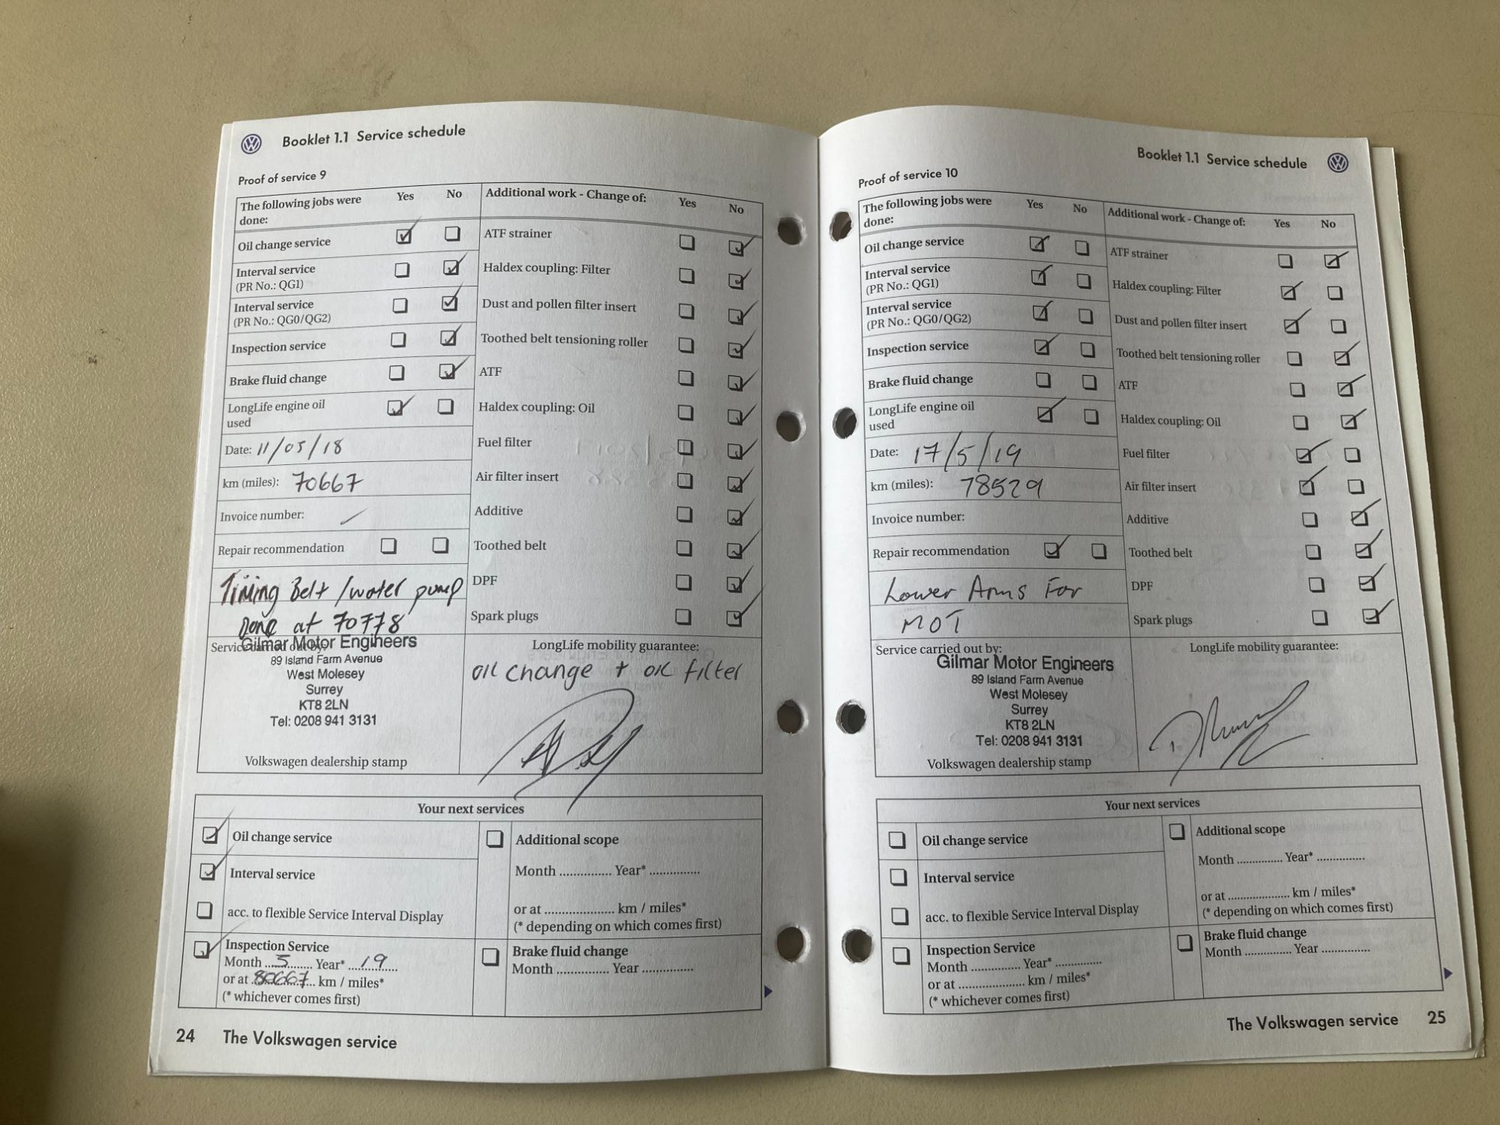 Booklet 1.1 Service schedule
Proof of service 9
The following jobs were done: Yes No
Oil change service
Interval service
(PR No.: QG1)
Interval service
(PR No.: QG0/QG2)
Inspection service
Brake fluid change
LongLife engine oil
used
Date: 11/05/18
km (miles): 70667
Invoice number:
Repair recommendation
Timing Belt/water pump
Done at 70778
Service carried out by:
Gilmar Motor Engineers
89 Island Farm Avenue
West Molesey
Surrey
KT8 2LN
Tel: 0208 941 3131
Volkswagen dealership stamp
Additional work - Change of: Yes No
ATF strainer
Haldex coupling: Filter
Dust and pollen filter insert
Toothed belt tensioning roller
ATF
Haldex coupling: Oil
Fuel filter
Air filter insert
Additive
Toothed belt
DPF
Spark plugs
LongLife mobility guarantee:
oil change + oil filter
Your next services
Oil change service
Interval service
acc. to flexible Service Interval Display
Inspection Service
Month ...5... Year* ...19...
or at 80667 km / miles*
(* whichever comes first)
Additional scope
Month .............. Year* ..............
or at ................... km / miles*
(* depending on which comes first)
Brake fluid change
Month .............. Year ..............
24 The Volkswagen service
Booklet 1.1 Service schedule
Proof of service 10
The following jobs were done: Yes No
Oil change service
Interval service
(PR No.: QG1)
Interval service
(PR No.: QG0/QG2)
Inspection service
Brake fluid change
LongLife engine oil
used
Date: 17/5/19
km (miles): 78529
Invoice number:
Repair recommendation
Lower Arms For
MOT
Service carried out by:
Gilmar Motor Engineers
89 Island Farm Avenue
West Molesey
Surrey
KT8 2LN
Tel: 0208 941 3131
Volkswagen dealership stamp
Additional work - Change of: Yes No
ATF strainer
Haldex coupling: Filter
Dust and pollen filter insert
Toothed belt tensioning roller
ATF
Haldex coupling: Oil
Fuel filter
Air filter insert
Additive
Toothed belt
DPF
Spark plugs
LongLife mobility guarantee:
Your next services
Oil change service
Interval service
acc. to flexible Service Interval Display
Inspection Service
Month .............. Year* ..............
or at ................... km / miles*
(* whichever comes first)
Additional scope
Month .............. Year* ..............
or at ................... km / miles*
(* depending on which comes first)
Brake fluid change
Month .............. Year ..............
The Volkswagen service 25